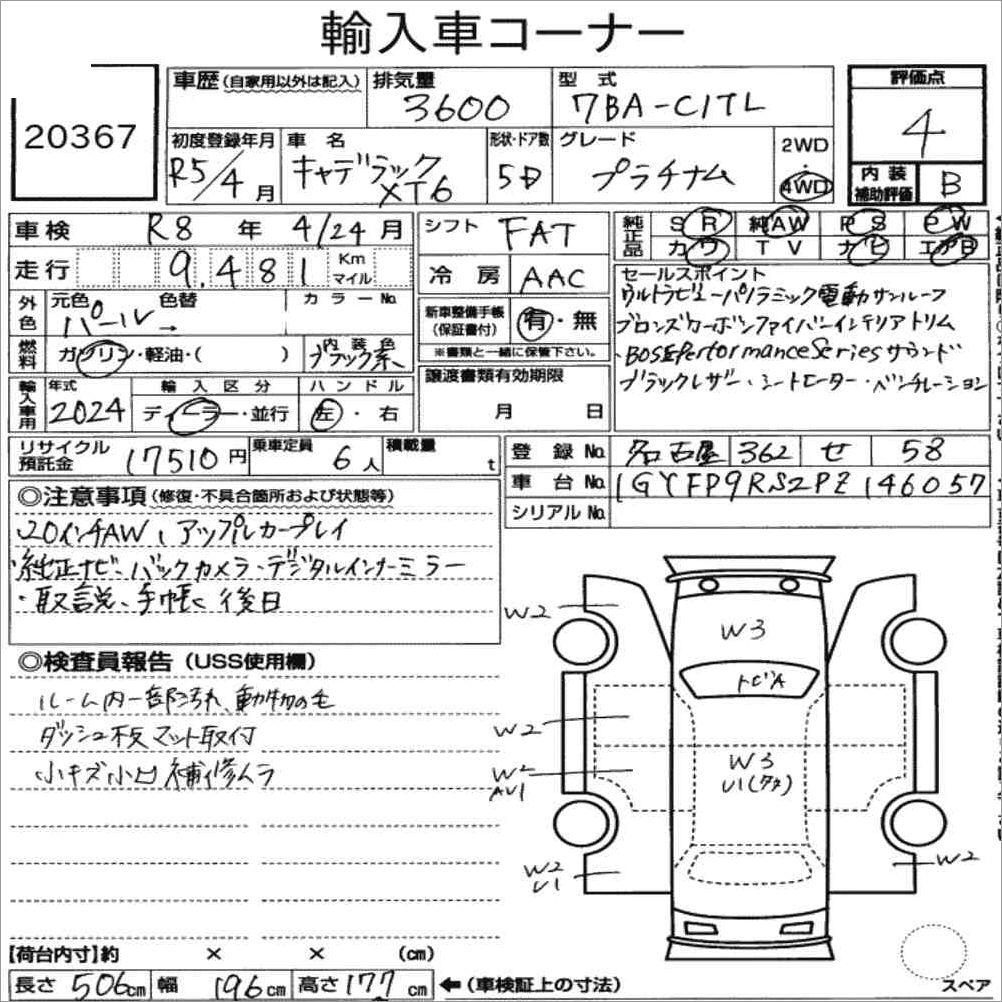 輸入車コーナー
20367
車歴 (自家用以外は記入) 排気量 3600 型式 7BA-C1TL
評価点 4
初度登録年月 R5/4月 車名 キャデラック XT6 形状・ドア数 5D グレード プラチナム 2WD 4WD
内装補助評価 B
車検 R8年 4/24月 シフト FAT 純正品 SR 純AW PS PW
カワ TV ナビ エアB
走行 9,481 Km マイル 冷房 AAC
外色 元色 パール → 色替 カラーNo.
新車整備手帳 (保証書付) 有・無
※書類と一緒に保管下さい。
セールスポイント
ウルトラビューパノラミック電動サンルーフ
ブロンズカーボンファイバーインテリアトリム
BOSE Performance Series サウンド
ブラックレザー・シートヒーター・ベンチレーション
燃料 ガソリン・軽油・( ) 内装色 ブラック系
輸入車用 年式 2024 輸入区分 ディーラー・並行 ハンドル 左・右
譲渡書類有効期限 月 日
リサイクル預託金 17510円 乗車定員 6人 積載量 t
登録No. 名古屋 362 せ 58
車台No. 1GYFP9RS2PZ146057
シリアルNo.
◎注意事項 (修復・不具合箇所および状態等)
・20インチAW、アップルカープレイ
・純正ナビ、バックカメラ・デジタルインナーミラー
・取説、手帳 後日
◎検査員報告 (USS使用欄)
ルーム内一部汚れ、動物の毛
ダッシュ板 マット取付
小キズ小凹 補修ムラ
W2
W3
トビA
W2
W3
U1(タタ)
W2
AU1
W2
U1
W2
スペア
【荷台内寸】約 × × (cm)
長さ 506cm 幅 196cm 高さ 177cm ←(車検証上の寸法)